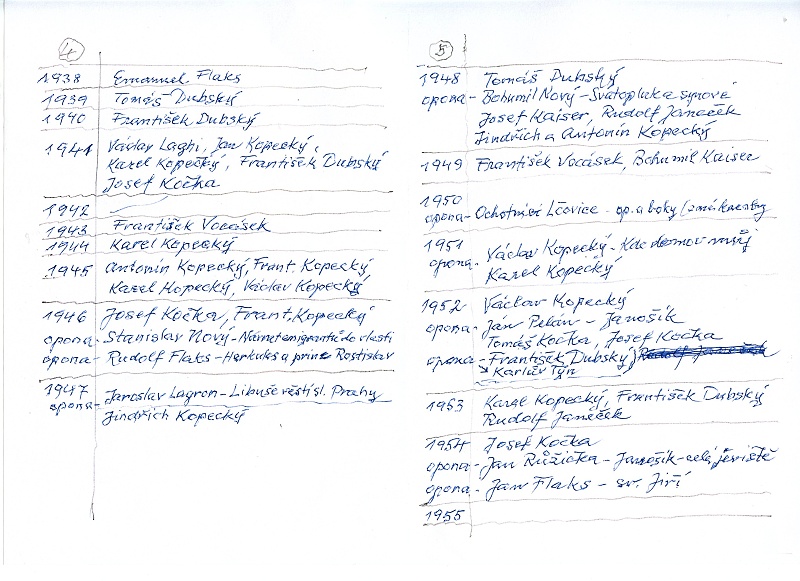 4
1938 Emanuel Flaks
1939 Tomáš Dubský
1940 František Dubský
1941 Václav Laghi, Jan Kopecký,
Karel Kopecký, František Dubský
Josef Kočka
1942
1943 František Vocásek
1944 Karel Kopecký
1945 Antonín Kopecký, Frant. Kopecký,
Karel Kopecký, Václav Kopecký
1946 Josef Kočka, Frant. Kopecký
opona - Stanislav Nový - Návrat emigrantů do vlasti
opona - Rudolf Flaks - Herkules a princ Rostislav
1947 Jaroslav Lagron - Libuše věstí sl. Prahy
opona -
Jindřich Kopecký
5
1948 Tomáš Dubský
opona - Bohumil Nový - Svatopluk a synové
Josef Kaiser, Rudolf Janeček
Jindřich a Antonín Kopecký
1949 František Vocásek, Bohumil Kaiser
1950
opona - Ochotníci Lčovice - op. a boky
1951 Václav Kopecký - Kde domov můj
opona -
Karel Kopecký
1952 Václav Kopecký
opona - Ján Pekán - Janošík
Tomáš Kočka, Josef Kočka
opona - František Dubský,
Karlův Týn
1953 Karel Kopecký, František Dubský
Rudolf Janeček
1954 Josef Kočka
opona - Jan Růžička - Janošík - celá jeviště
opona - Jan Flaks - sv. Jiří
1955